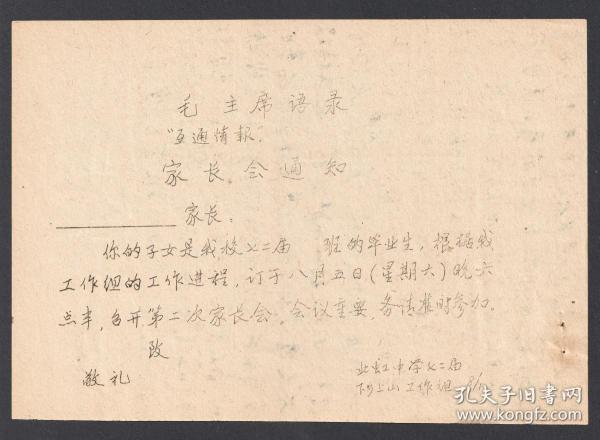 毛主席语录
“互通情報”。
家长会通知
家长:
你的子女是我校七二届 班的毕业生,根据我
工作组的工作进程,订于八月五日(星期六)晚六
点半,召开第二次家长会,会议重要,务请准时参加。
致
敬礼
北虹中学七二届
下乡上山工作组
孔夫子旧书网
www.kongfz.com